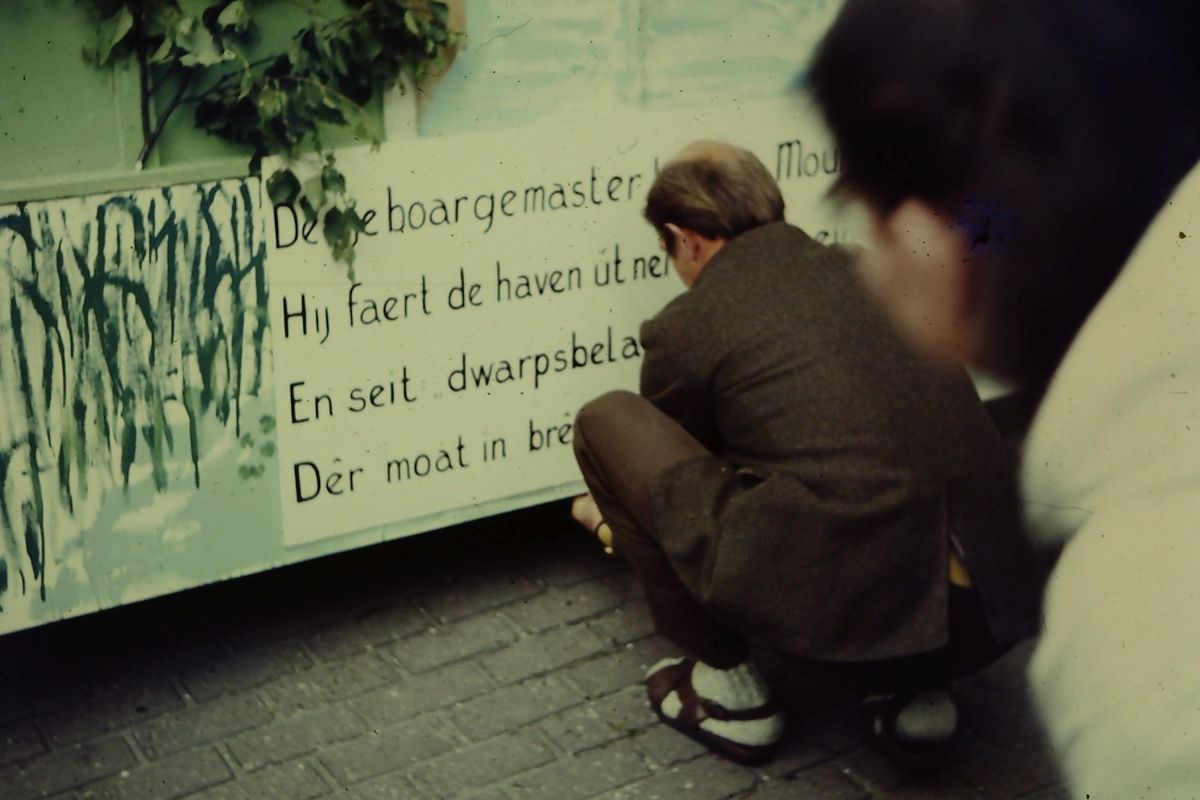 boargemaster Mou
Hij faert de haven út nei
En seit dwarpsbela
Dêr moat in brê